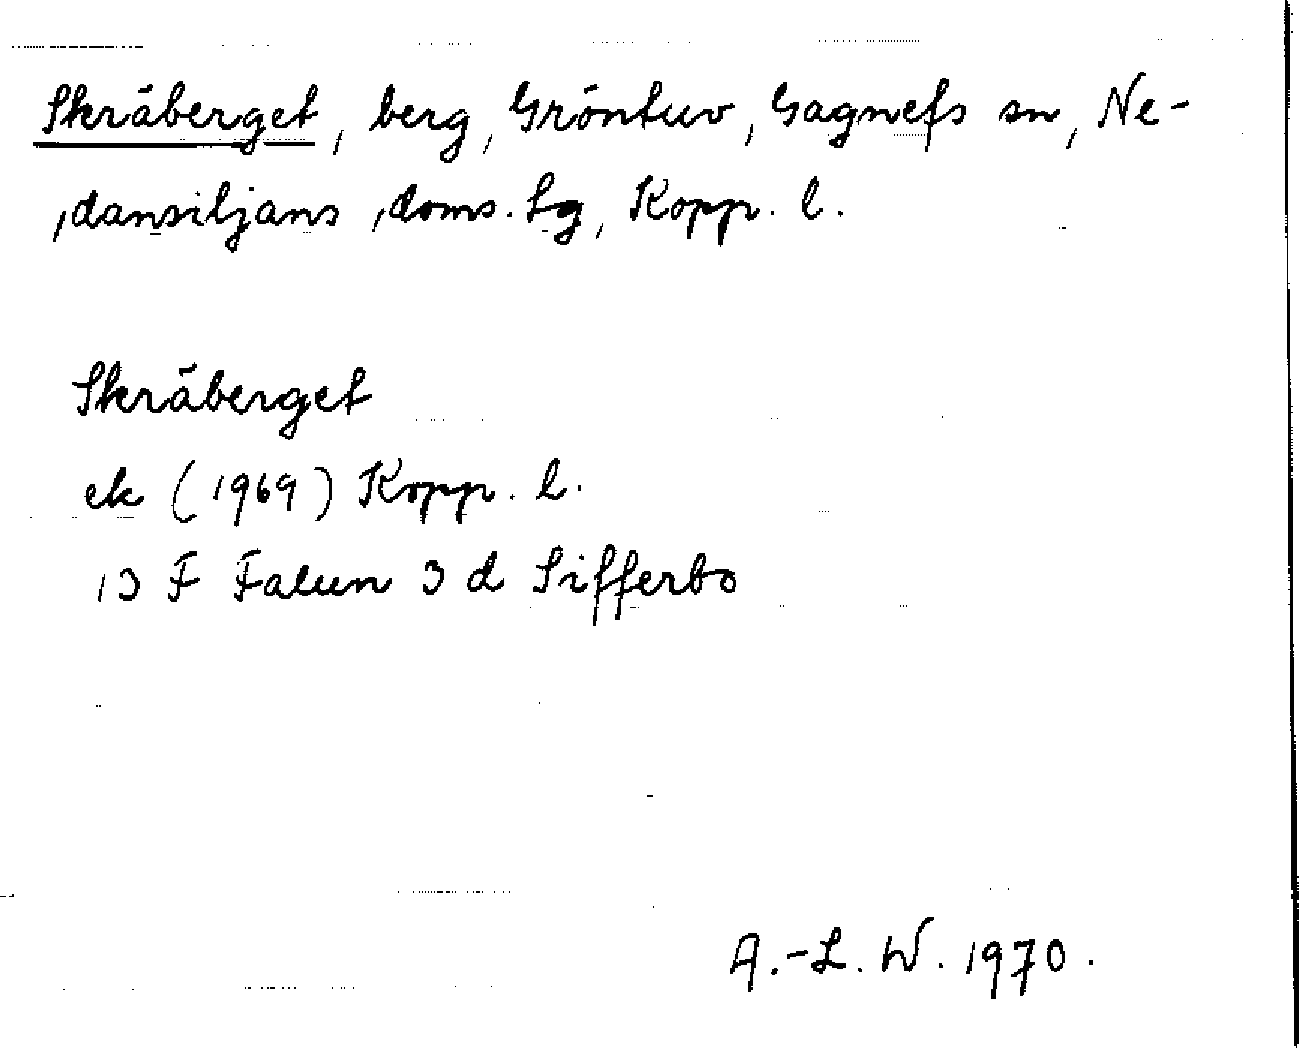 Skräberget, berg, Gröntuv, Gagnefs sn, Ne-
dansiljans doms. lg, Kopp. l.
Skräberget
ek (1969) Kopp. l.
13 F Falun 3 d Sifferbo
A.-L. W. 1970.